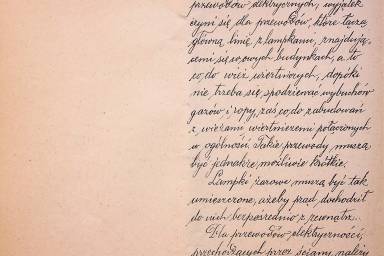 przewodów elektrycznych, wyjątek
czyni się dla przewodów, które łączą
główną linię z lampkami, znajdują-
cemi się w owych budynkach, a to
co do wież wiertniczych, dopóki
nie trzeba się spodziewać wybuchów
gazów i ropy, zaś co do zabudowań
z wieżami wiertniczemi połączonych
w ogólności. Takie przewody muszą
być jednakże możliwie krótkie.
Lampki żarowe muszą być tak
umieszczone, ażeby prąd dochodził
do nich bezpośrednio z zewnątrz.
Dla przewodów elektryczności,
przechodzących przez ściany, należy